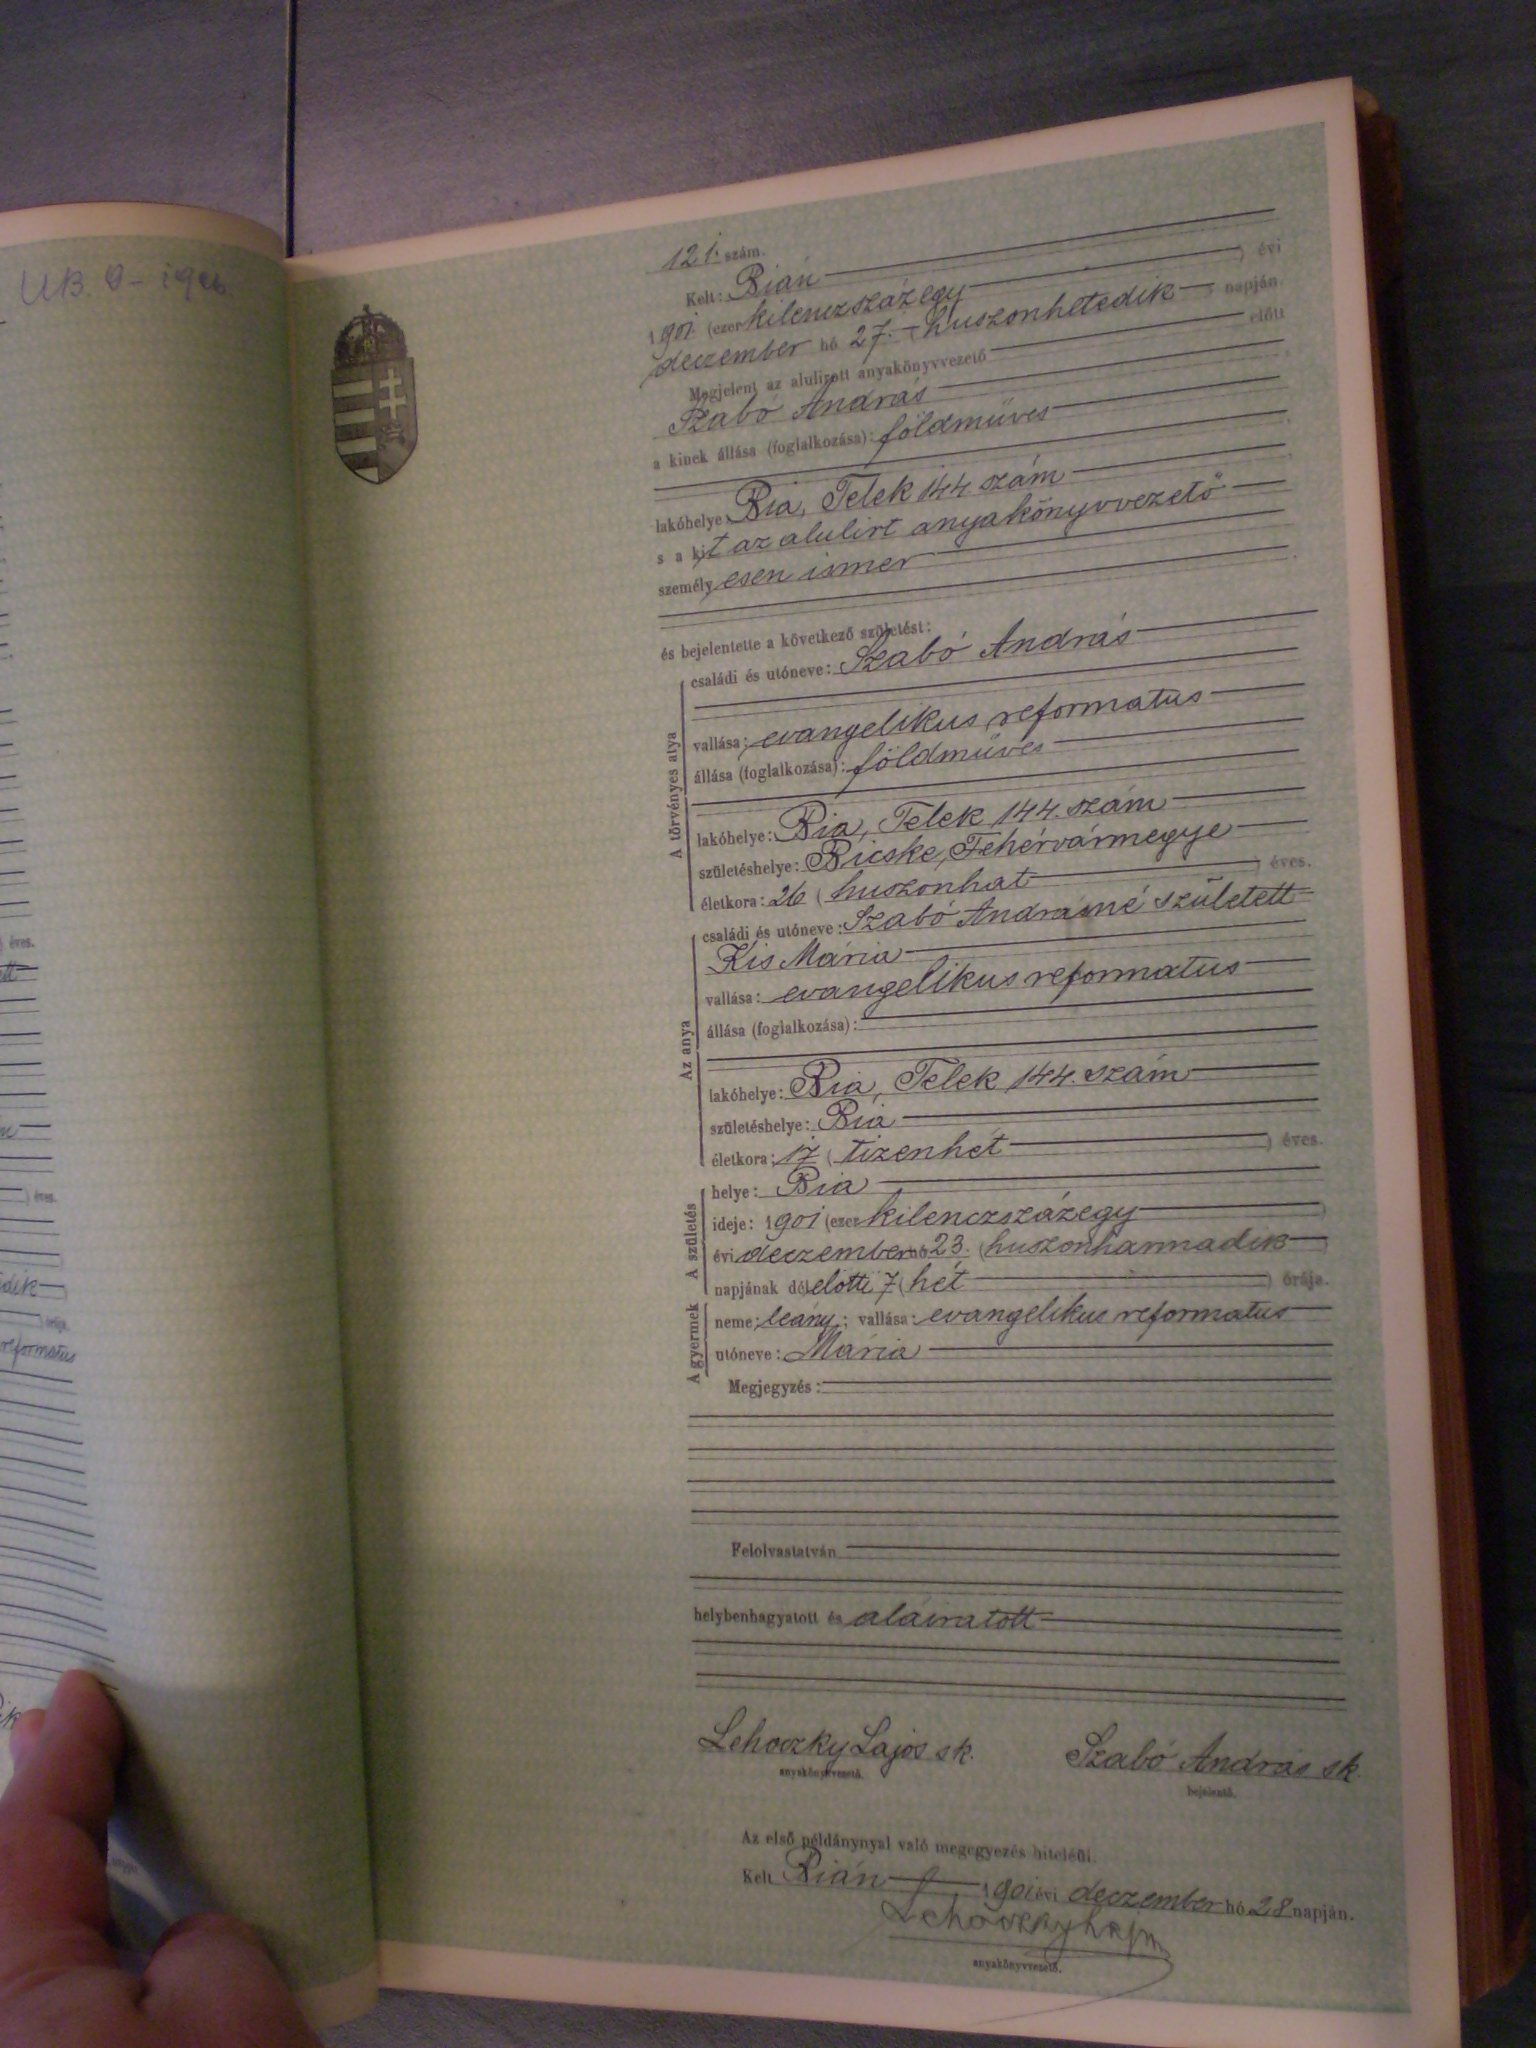 UB. 9 - 1906
121. szám.
Kelt: Bián
1901 (ezer kilenczszázegy ) évi
deczember hó 27. (huszonhetedik ) napján.
Megjelent az alulirott anyakönyvvezető előtt
Szabó András
a kinek állása (foglalkozása): földmüves
lakóhelye: Bia, Telek 144 szám
s a kit az alulirt anyakönyvvezető
személyesen ismer
és bejelentette a következő születést:
A törvényes atya
családi és utóneve: Szabó András
vallása: evangelikus reformatus
állása (foglalkozása): földmüves
lakóhelye: Bia, Telek 144. szám
születéshelye: Bicske, Fehérvármegye
életkora: 26 (huszonhat ) éves.
Az anya
családi és utóneve: Szabó Andrásné született
Kis Mária
vallása: evangelikus reformatus
állása (foglalkozása):
lakóhelye: Bia, Telek 144. szám
születéshelye: Bia
életkora: 17 (tizenhét ) éves.
A születés
helye: Bia
ideje: 1901 (ezer kilenczszázegy )
évi deczember hó 23. (huszonharmadik )
napjának délelőtti 7 (hét ) órája.
A gyermek
neme: leány; vallása: evangelikus reformatus
utóneve: Mária
Megjegyzés:
Felolvastatván
helybenhagyatott és aláiratott
Lehoczky Lajos sk. Szabó András sk.
anyakönyvvezető. bejelentő.
Az első példánynyal való megegyezés hiteléül.
Kelt Bián 1901 évi deczember hó 28 napján.
Lehoczky Lajos
anyakönyvvezető.
éves.
éves.
reformatus